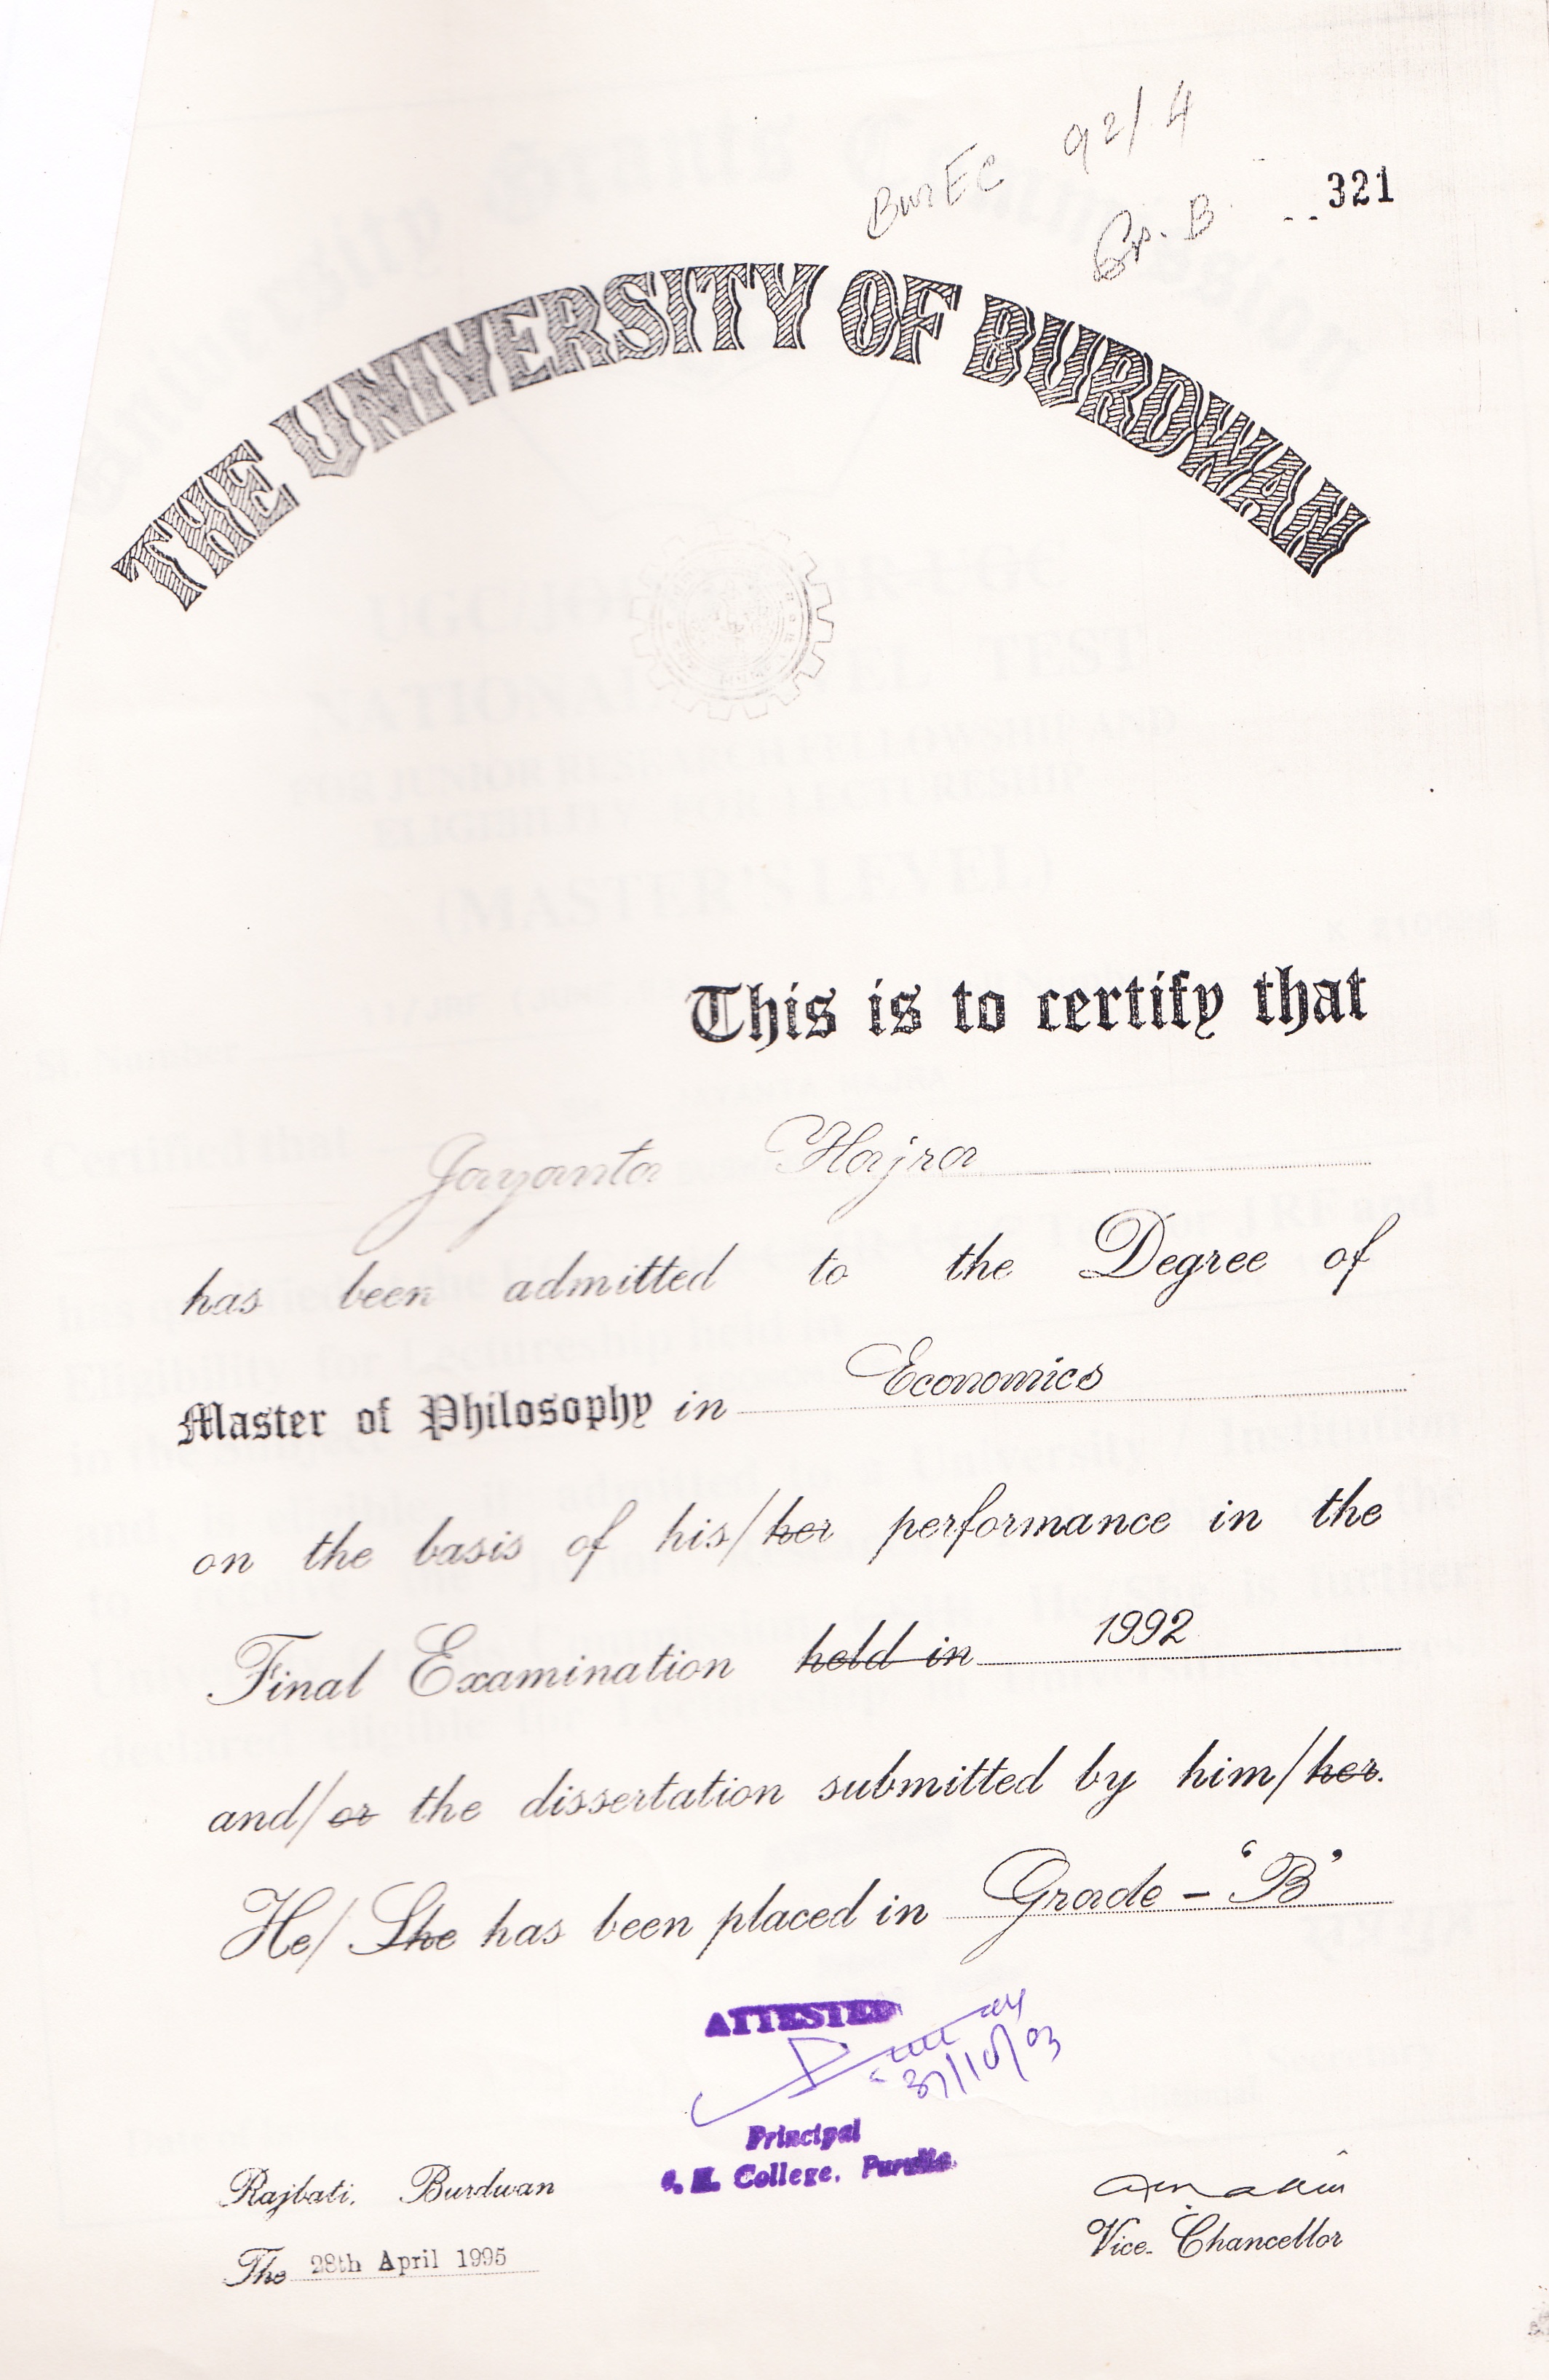 BurEC 92/4
Gr. B
321
THE UNIVERSITY OF BURDWAN
This is to certify that
Jayanta Hajra
has been admitted to the Degree of
Master of Philosophy in Economics
on the basis of his/her performance in the
Final Examination held in 1992
and/or the dissertation submitted by him/her.
He/She has been placed in Grade - 'B'
ATTESTED
Principal
College,
Rajbati, Burdwan
The 28th April 1995
Vice-Chancellor
UGC
NATIONAL TEST
FOR JUNIOR RESEARCH FELLOWSHIP AND
ELIGIBILITY FOR LECTURESHIP
(MASTER'S LEVEL)